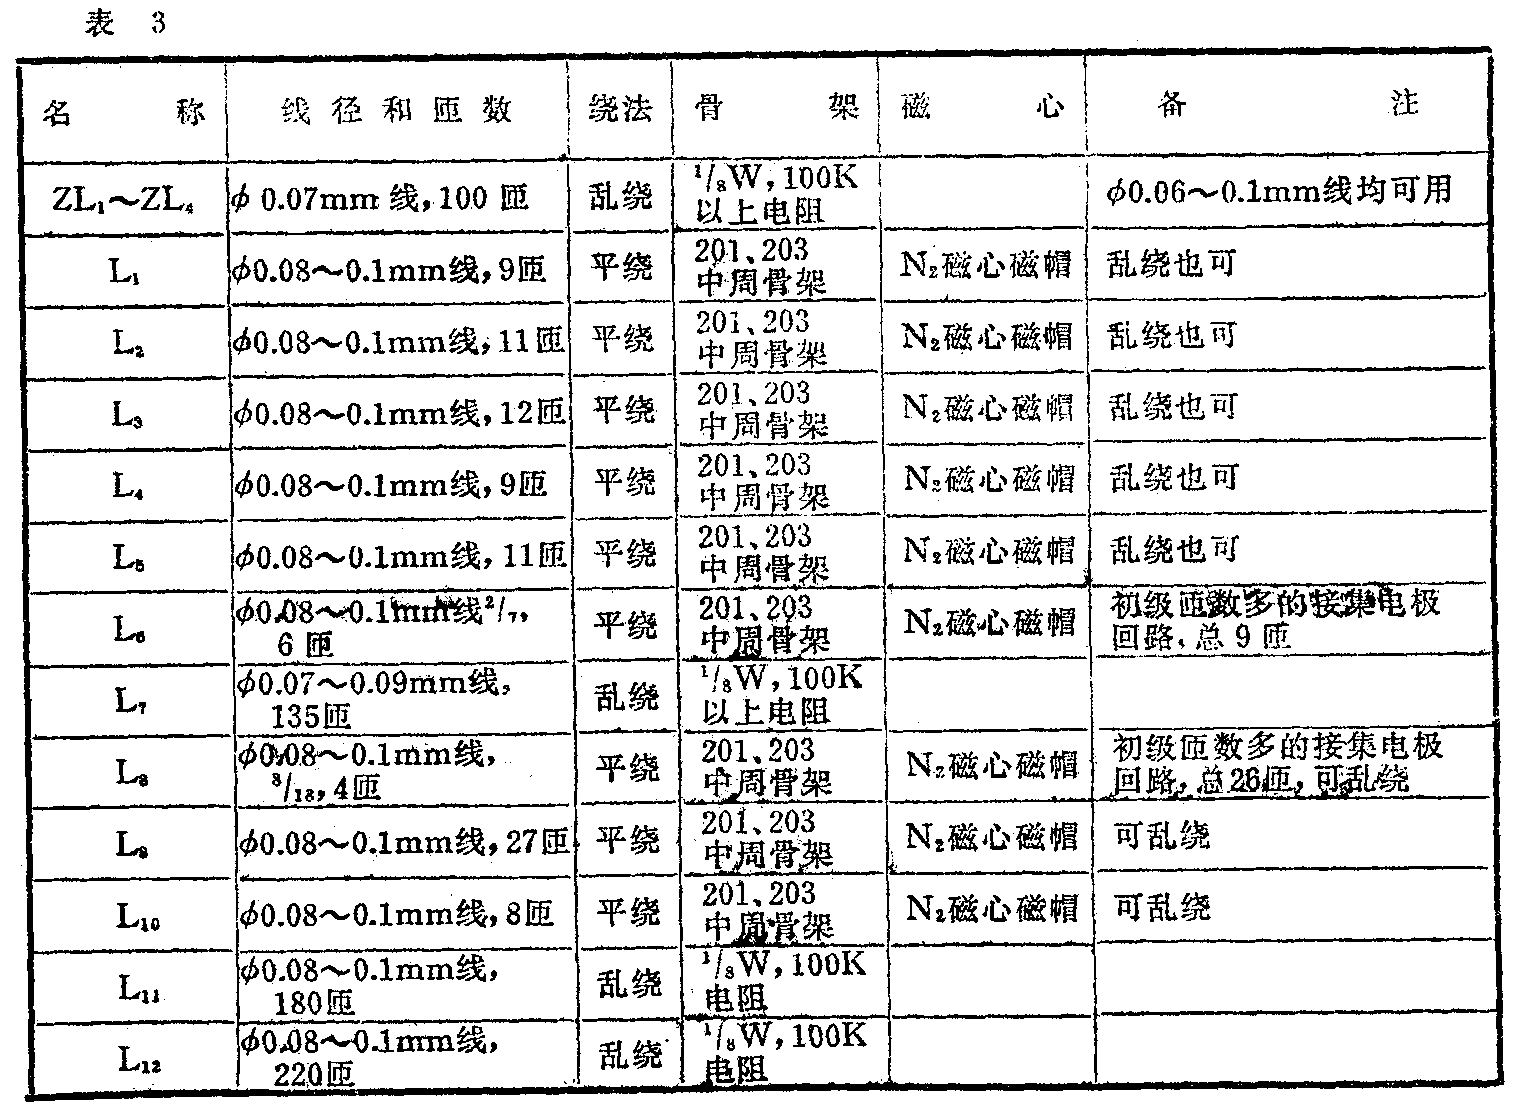 表 3
名称 线径和匝数 绕法 骨架 磁心 备注
ZL₁～ZL₄ φ0.07mm线，100匝 乱绕 ¹/₈W，100K以上电阻 φ0.06～0.1mm线均可用
L₁ φ0.08～0.1mm线，9匝 平绕 201、203中周骨架 N₂磁心磁帽 乱绕也可
L₂ φ0.08～0.1mm线，11匝 平绕 201、203中周骨架 N₂磁心磁帽 乱绕也可
L₃ φ0.08～0.1mm线，12匝 平绕 201、203中周骨架 N₂磁心磁帽 乱绕也可
L₄ φ0.08～0.1mm线，9匝 平绕 201、203中周骨架 N₂磁心磁帽 乱绕也可
L₅ φ0.08～0.1mm线，11匝 平绕 201、203中周骨架 N₂磁心磁帽 乱绕也可
L₆ φ0.08～0.1mm线²/₇，6匝 平绕 201、203中周骨架 N₂磁心磁帽 初级匝数多的接集电极回路，总9匝
L₇ φ0.07～0.09mm线，135匝 乱绕 ¹/₈W，100K以上电阻
L₈ φ0.08～0.1mm线，³/₁₉，4匝 平绕 201、203中周骨架 N₂磁心磁帽 初级匝数多的接集电极回路，总26匝，可乱绕
L₉ φ0.08～0.1mm线，27匝 平绕 201、203中周骨架 N₂磁心磁帽 可乱绕
L₁₀ φ0.08～0.1mm线，8匝 平绕 201、203中周骨架 N₂磁心磁帽 可乱绕
L₁₁ φ0.08～0.1mm线，180匝 乱绕 ¹/₈W，100K电阻
L₁₂ φ0.08～0.1mm线，220匝 乱绕 ¹/₈W，100K电阻